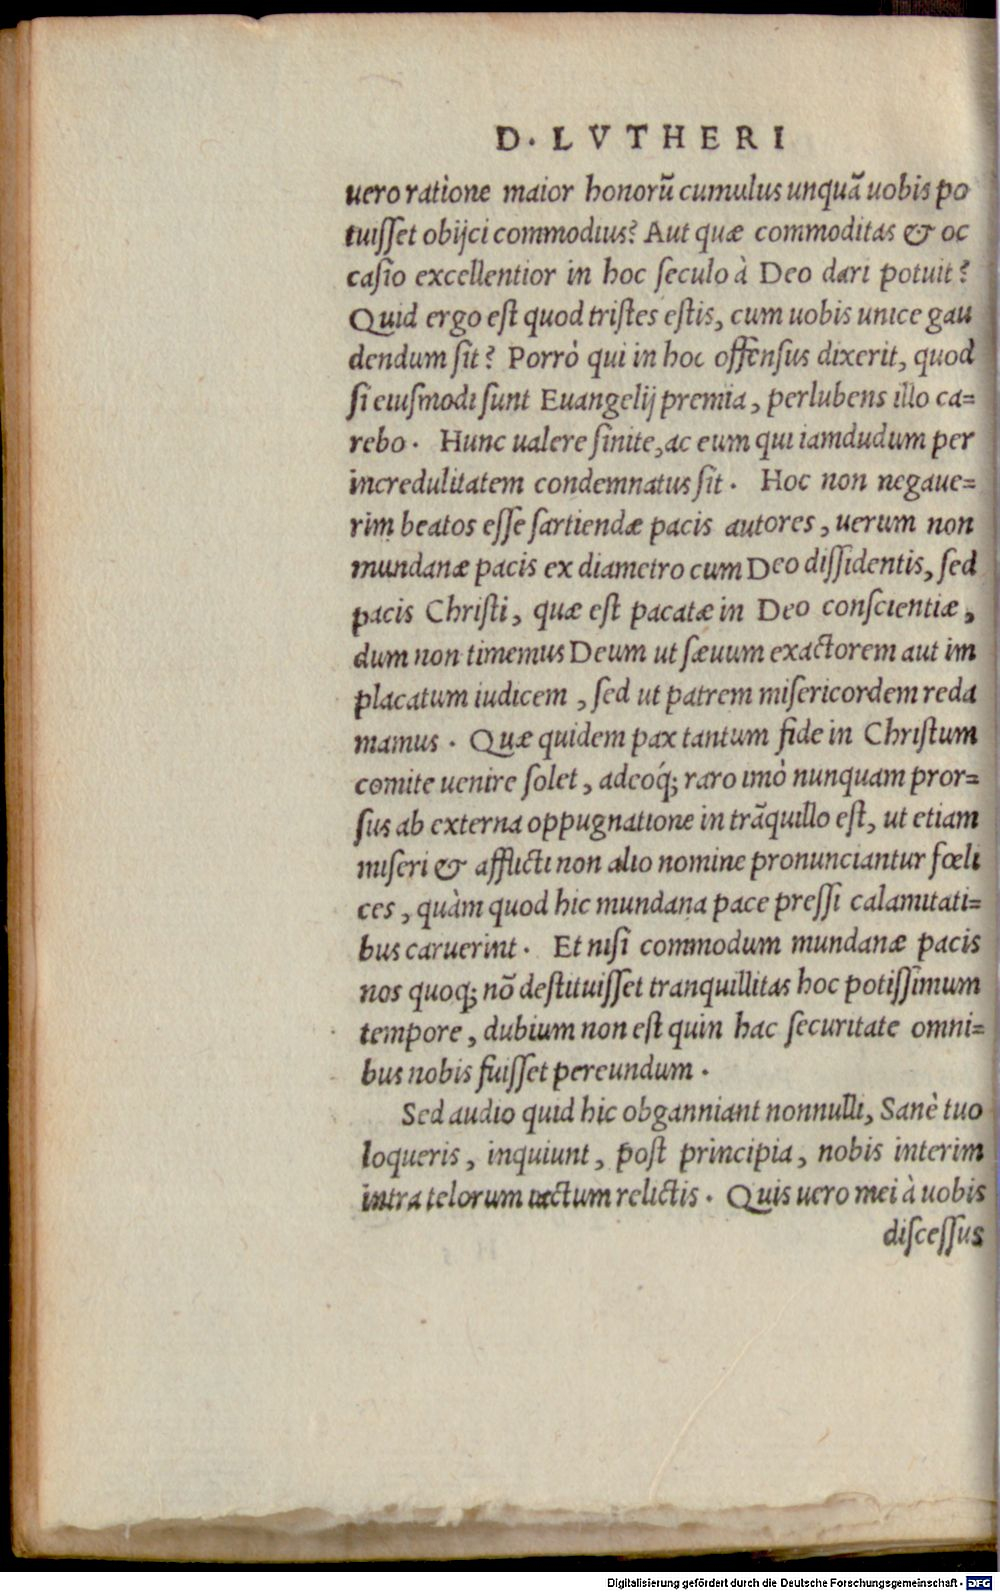 D. LVTHERI
uero ratione maior honorũ cumulus unquã uobis po
tuisset obijci commodius? Aut quæ commoditas & oc
casio excellentior in hoc seculo à Deo dari potuit?
Quid ergo est quod tristes estis, cum uobis unice gau
dendum sit? Porrò qui in hoc offensus dixerit, quod
si eiusmodi sunt Euangelij premia, perlubens illo ca=
rebo. Hunc ualere sinite, ac eum qui iamdudum per
incredulitatem condemnatus sit. Hoc non negaue=
rim beatos esse sartiendæ pacis autores, uerum non
mundanæ pacis ex diametro cum Deo dissidentis, sed
pacis Christi, quæ est pacatæ in Deo conscientiæ,
dum non timemus Deum ut sæuum exactorem aut im
placatum iudicem, sed ut patrem misericordem reda
mamus. Quæ quidem pax tantum fide in Christum
comite uenire solet, adeoq́; raro imò nunquam pror=
sus ab externa oppugnatione in trãquillo est, ut etiam
miseri & afflicti non alio nomine pronunciantur fœli
ces, quàm quod hic mundana pace pressi calamitati=
bus caruerint. Et nisi commodum mundanæ pacis
nos quoq; nõ destituisset tranquillitas hoc potissimum
tempore, dubium non est quin hac securitate omni=
bus nobis fuisset pereundum.
Sed audio quid hic obganniant nonnulli, Sanè tuo
loqueris, inquiunt, post principia, nobis interim
intra telorum iactum relictis. Quis uero mei à uobis
discessus
Digitalisierung gefördert durch die Deutsche Forschungsgemeinschaft - DFG